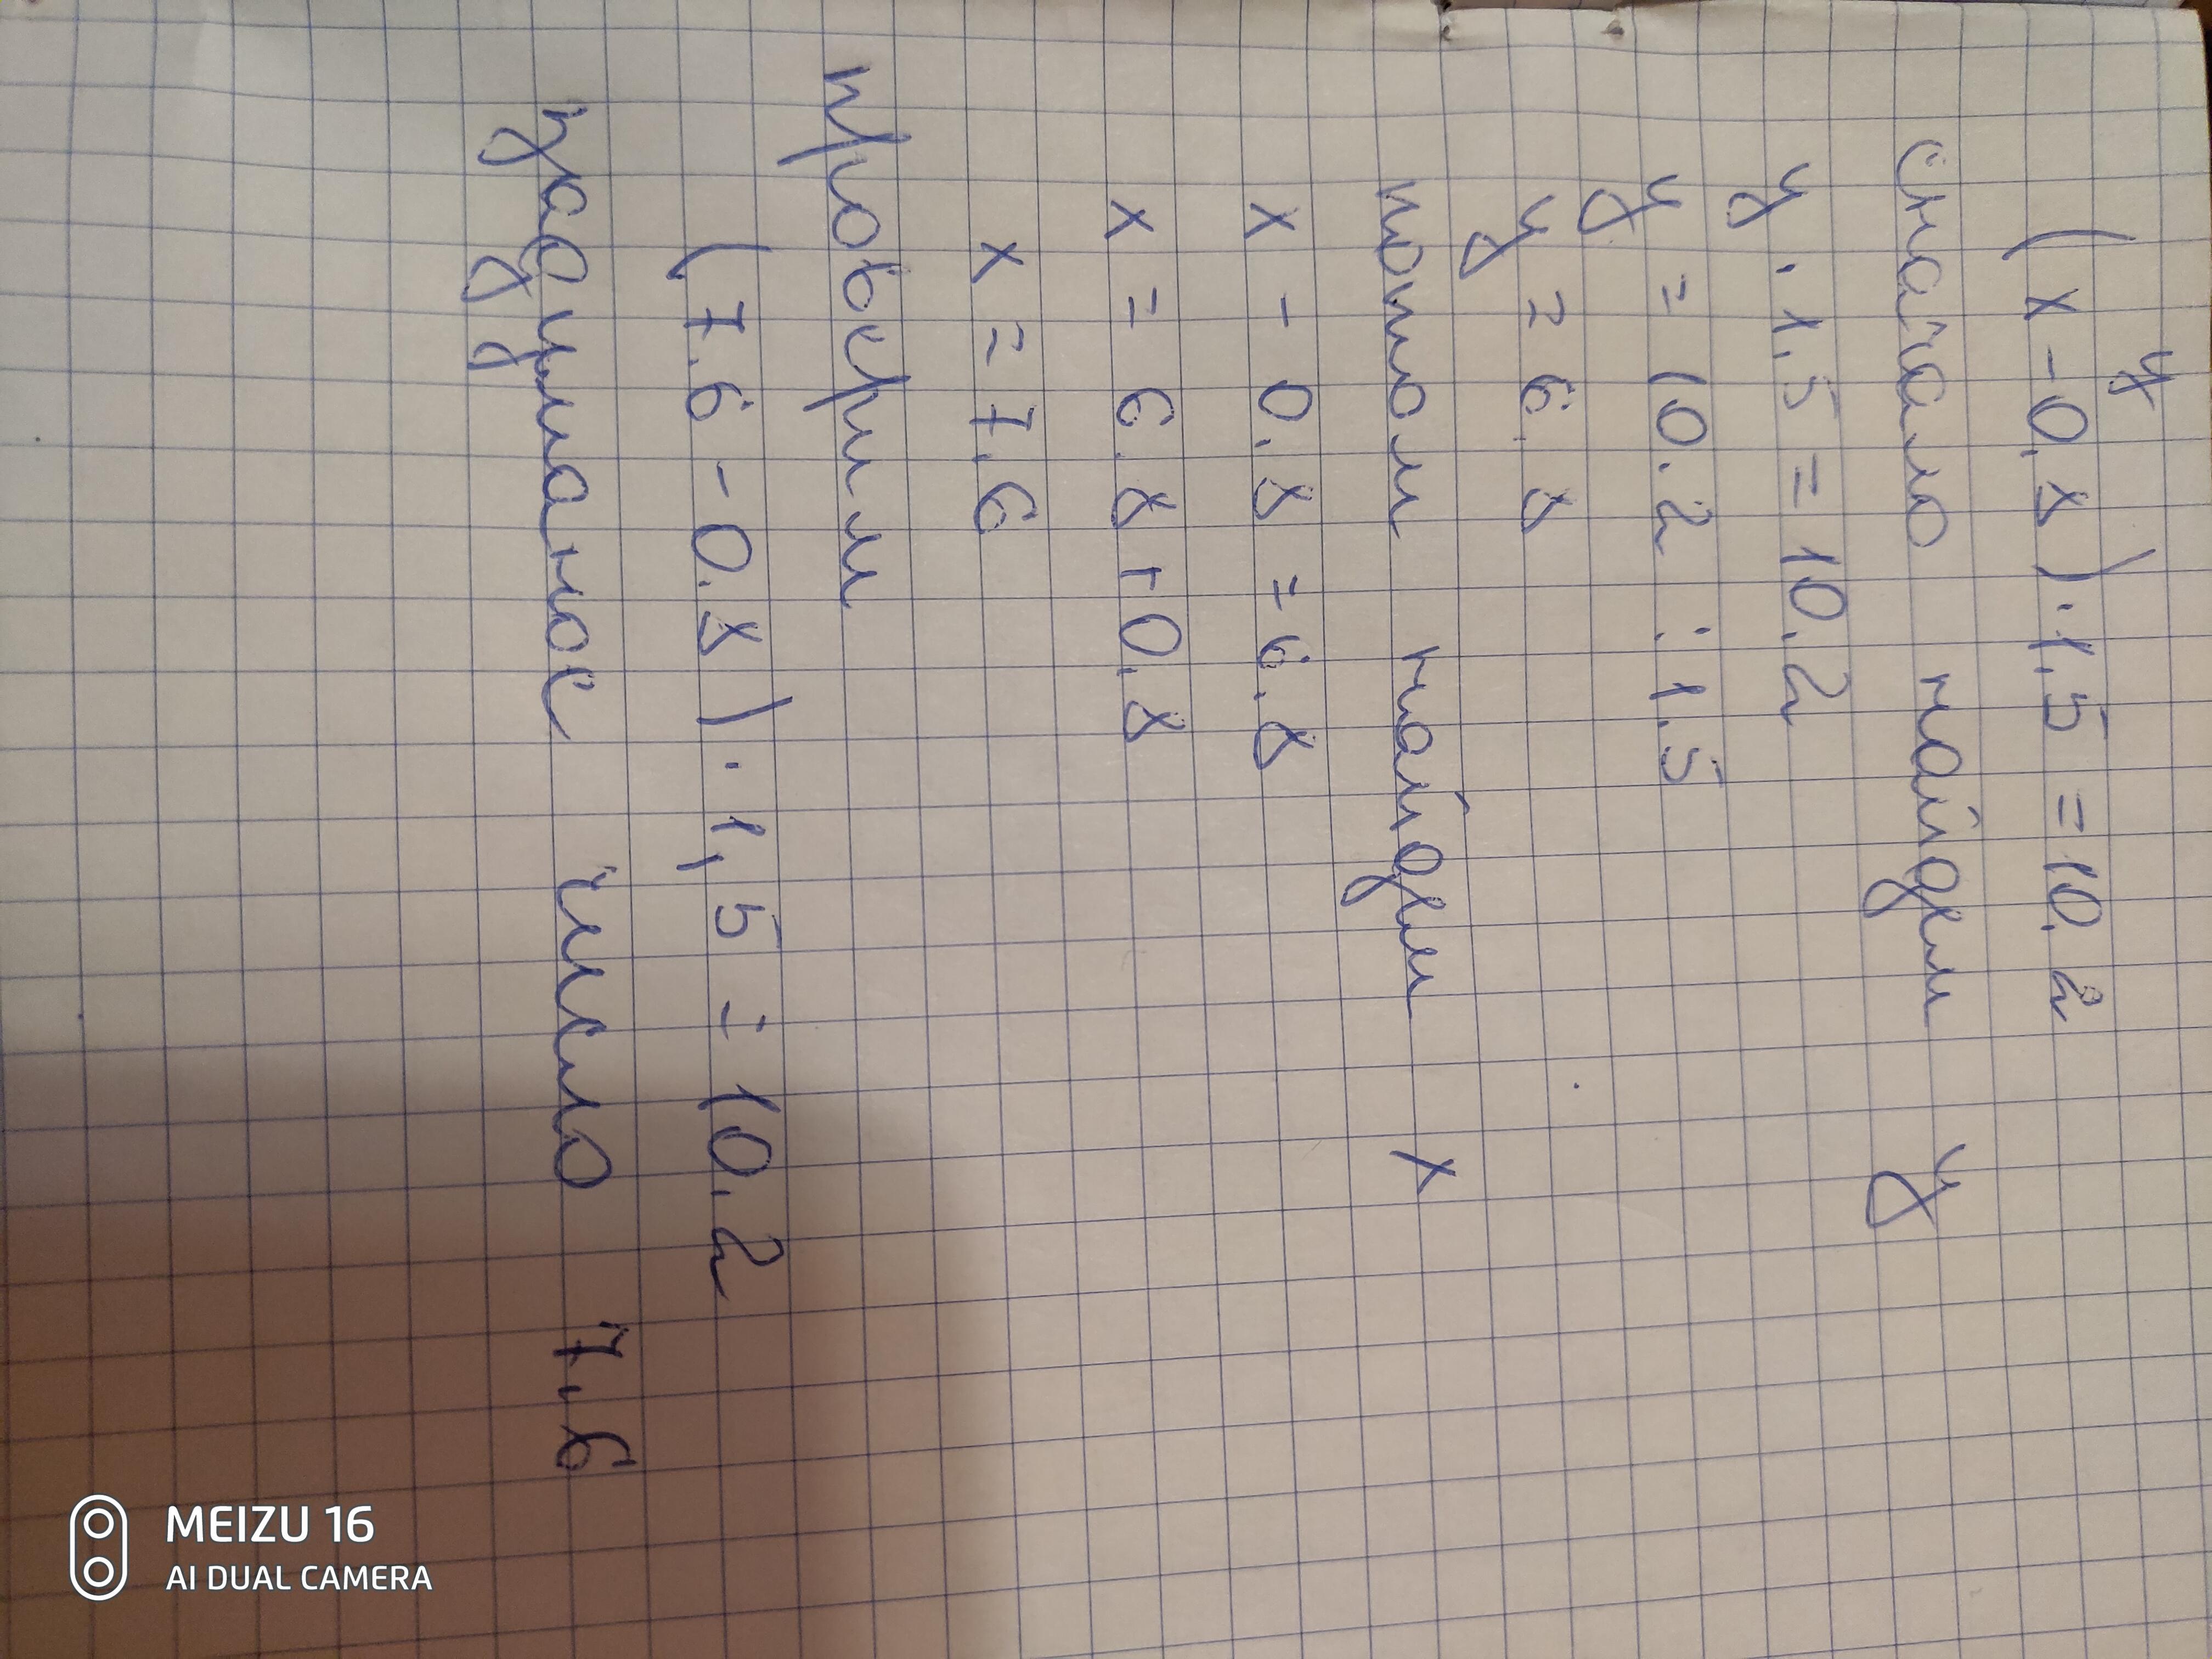 у
(х - 0.8) · 1.5 = 10.2
сначало найдем у
у · 1.5 = 10.2
у = 10.2 : 1.5
у = 6.8
потом найдем х
х - 0.8 = 6.8
х = 6.8 + 0.8
х = 7.6
проверим
(7.6 - 0.8) · 1,5 = 10.2
задуманое число 7.6
MEIZU 16
AI DUAL CAMERA